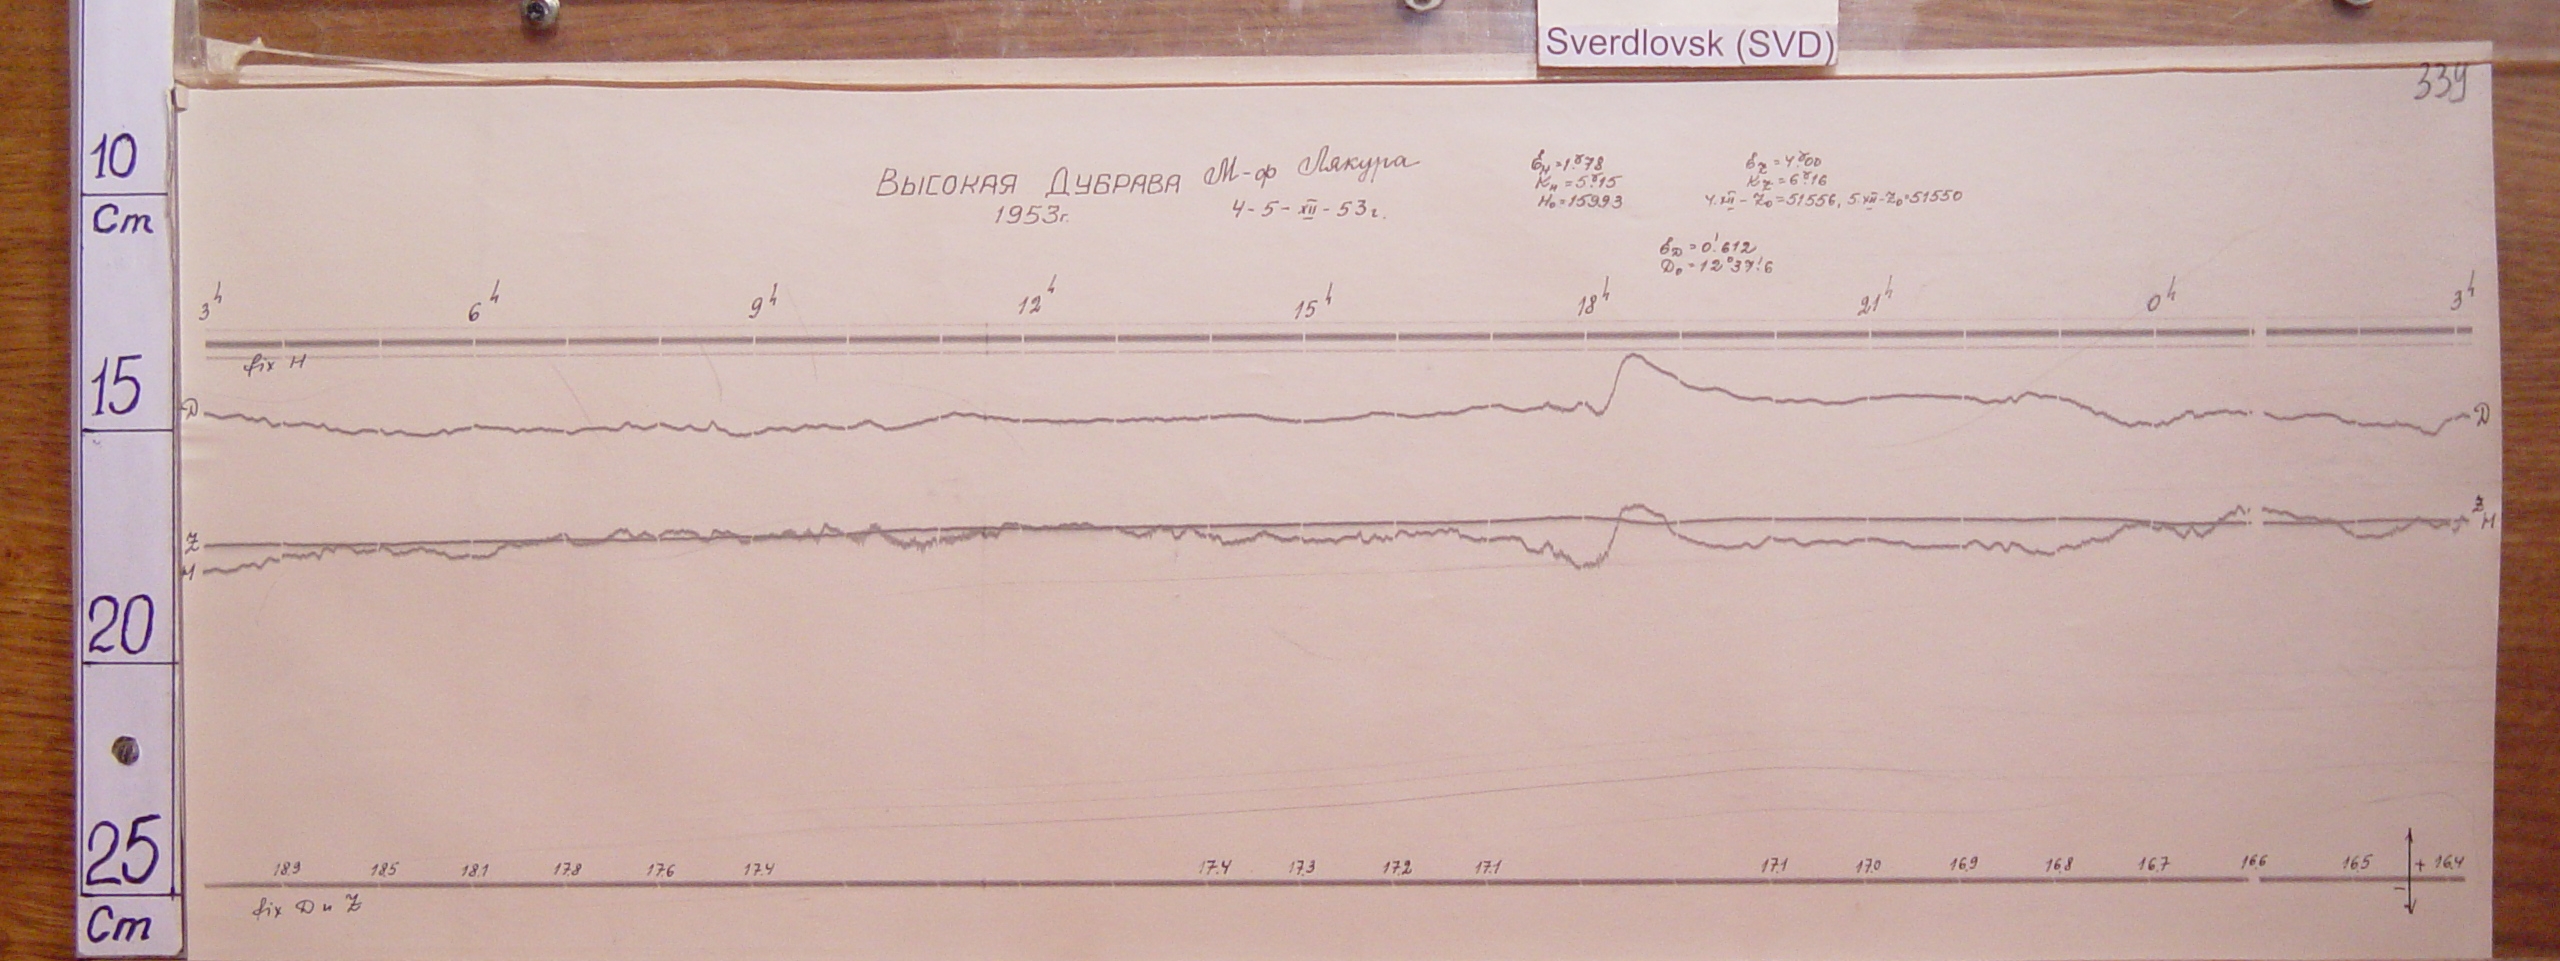 Sverdlovsk (SVD)
339
10
Cm
15
20
25
Cm
ВЫСОКАЯ ДУБРАВА М-ф Лякура
1953г. 4-5-XII-53г.
εH=1.γ78
KH=5.γ15
H0=15993
εZ=4.γ00
KZ=6.γ16
4.XII-Z0=51556, 5.XII-Z0=51550
εD=0.'612
D0=12°37.'6
3h 6h 9h 12h 15h 18h 21h 0h 3h
fix H
D D
Z Z
H H
18.9 18.5 18.1 17.8 17.6 17.4 17.4 17.3 17.2 17.1 17.1 17.0 16.9 16.8 16.7 16.6 16.5 + 16.4
-
fix D и Z